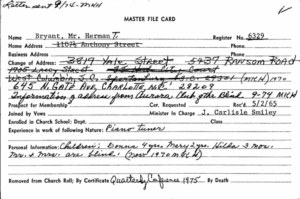 Letter sent 9/74 MKH
MASTER FILE CARD
Name Bryant, Mr. Herman T. Register No. 6329
Home Address 11071 Anthony Street Phone
Business Address Phone
Change of Address: 2817 Yale Street 5437 Rawson Road
1905 Lacy Street
West Columbia, S.C. (MKH) 1970
645 N. Gate Ave, Charlotte, N.C. 28209
Information of address from Aurora, Club of the Blind 9-74 MKH
Prospect for Membership Cer. Requested Rec'd 5/2/65
Joined by Vows Minister in Charge J. Carlisle Smiley
Enrolled in Church School: Dept. Class
Experience in work of following Nature: Piano tuner
Personal Information: Children: Donna 4 yrs. Mary 2 yrs. Hilda 3 mos.
Mr. & Mrs. are blind. (Nov 1970 MKH)
Removed from Church Roll; By Certificate Quarterly Conference 1975 By Death